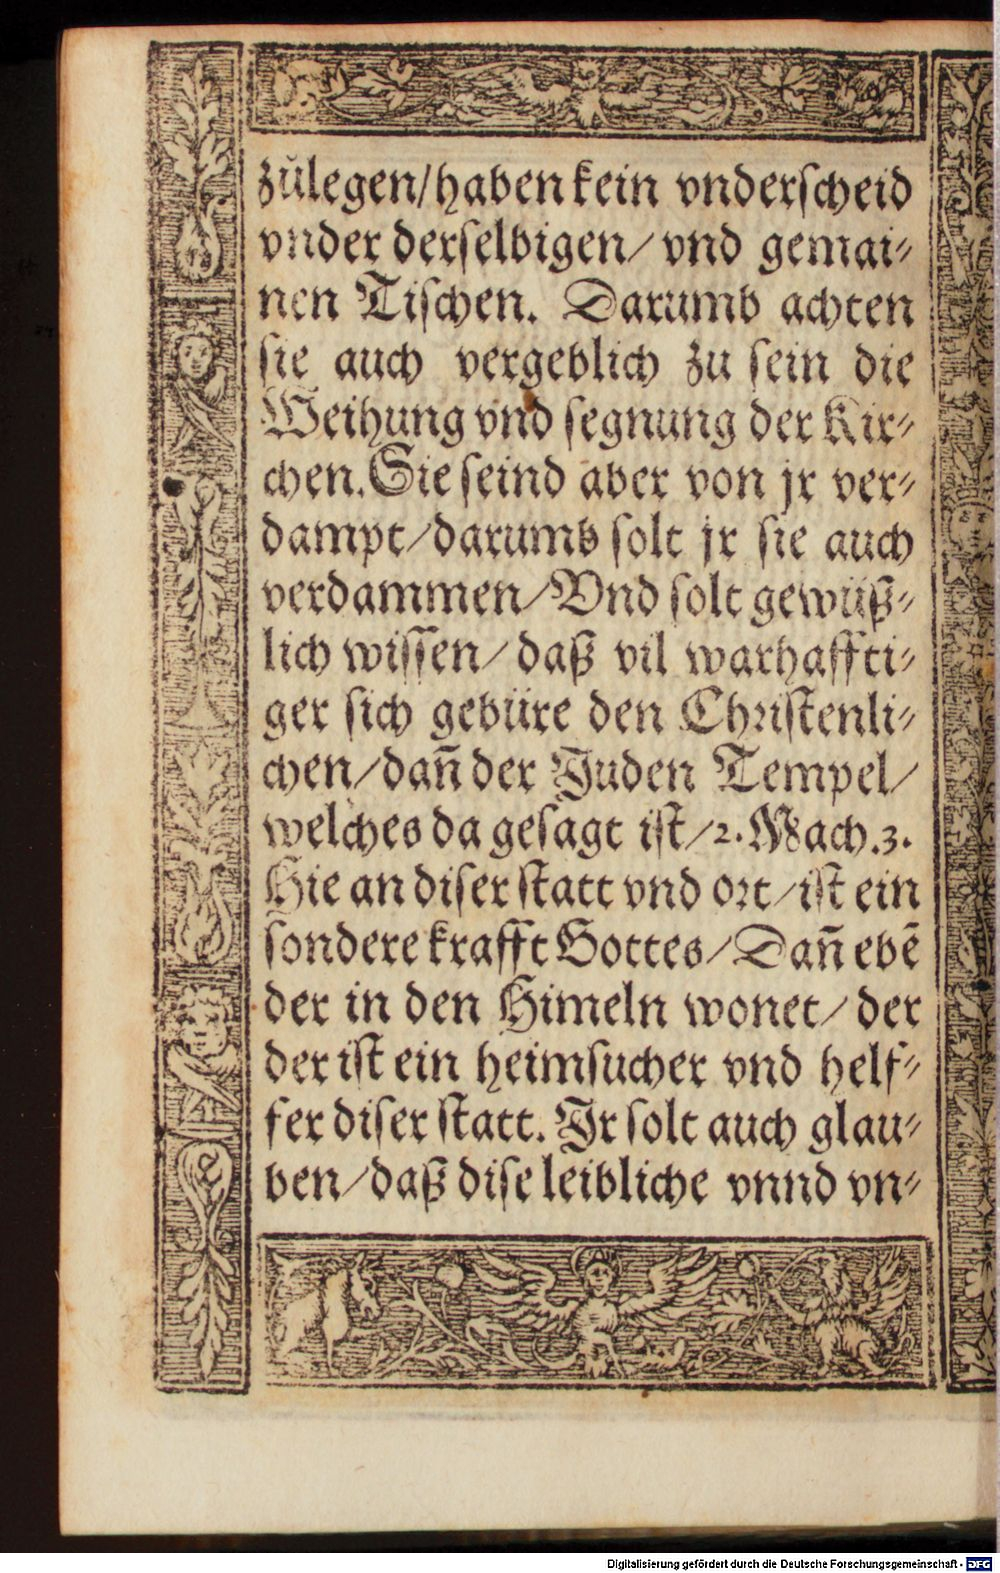 zůlegen/haben kein vnderscheid
vnder derselbigen/ vnd gemai⸗
nen Tischen. Darumb achten
sie auch vergeblich zu sein die
Weihung vnd segnung der Kir⸗
chen. Sie seind aber von jr ver⸗
dampt/darumb solt jr sie auch
verdammen/Vnd solt gewüß⸗
lich wissen/ daß vil warhaffti⸗
ger sich gebüre den Christenli⸗
chen/dañ der Juden Tempel/
welches da gesagt ist/2. Mach.3.
Hie an diser statt vnd ort/ist ein
sondere krafft Gottes/Dañ ebē
der in den Himeln wonet/ der
der ist ein heimsucher vnd helf⸗
fer diser statt. Jr solt auch glau⸗
ben/daß dise leibliche vnnd vn⸗
Digitalisierung gefördert durch die Deutsche Forschungsgemeinschaft - DFG